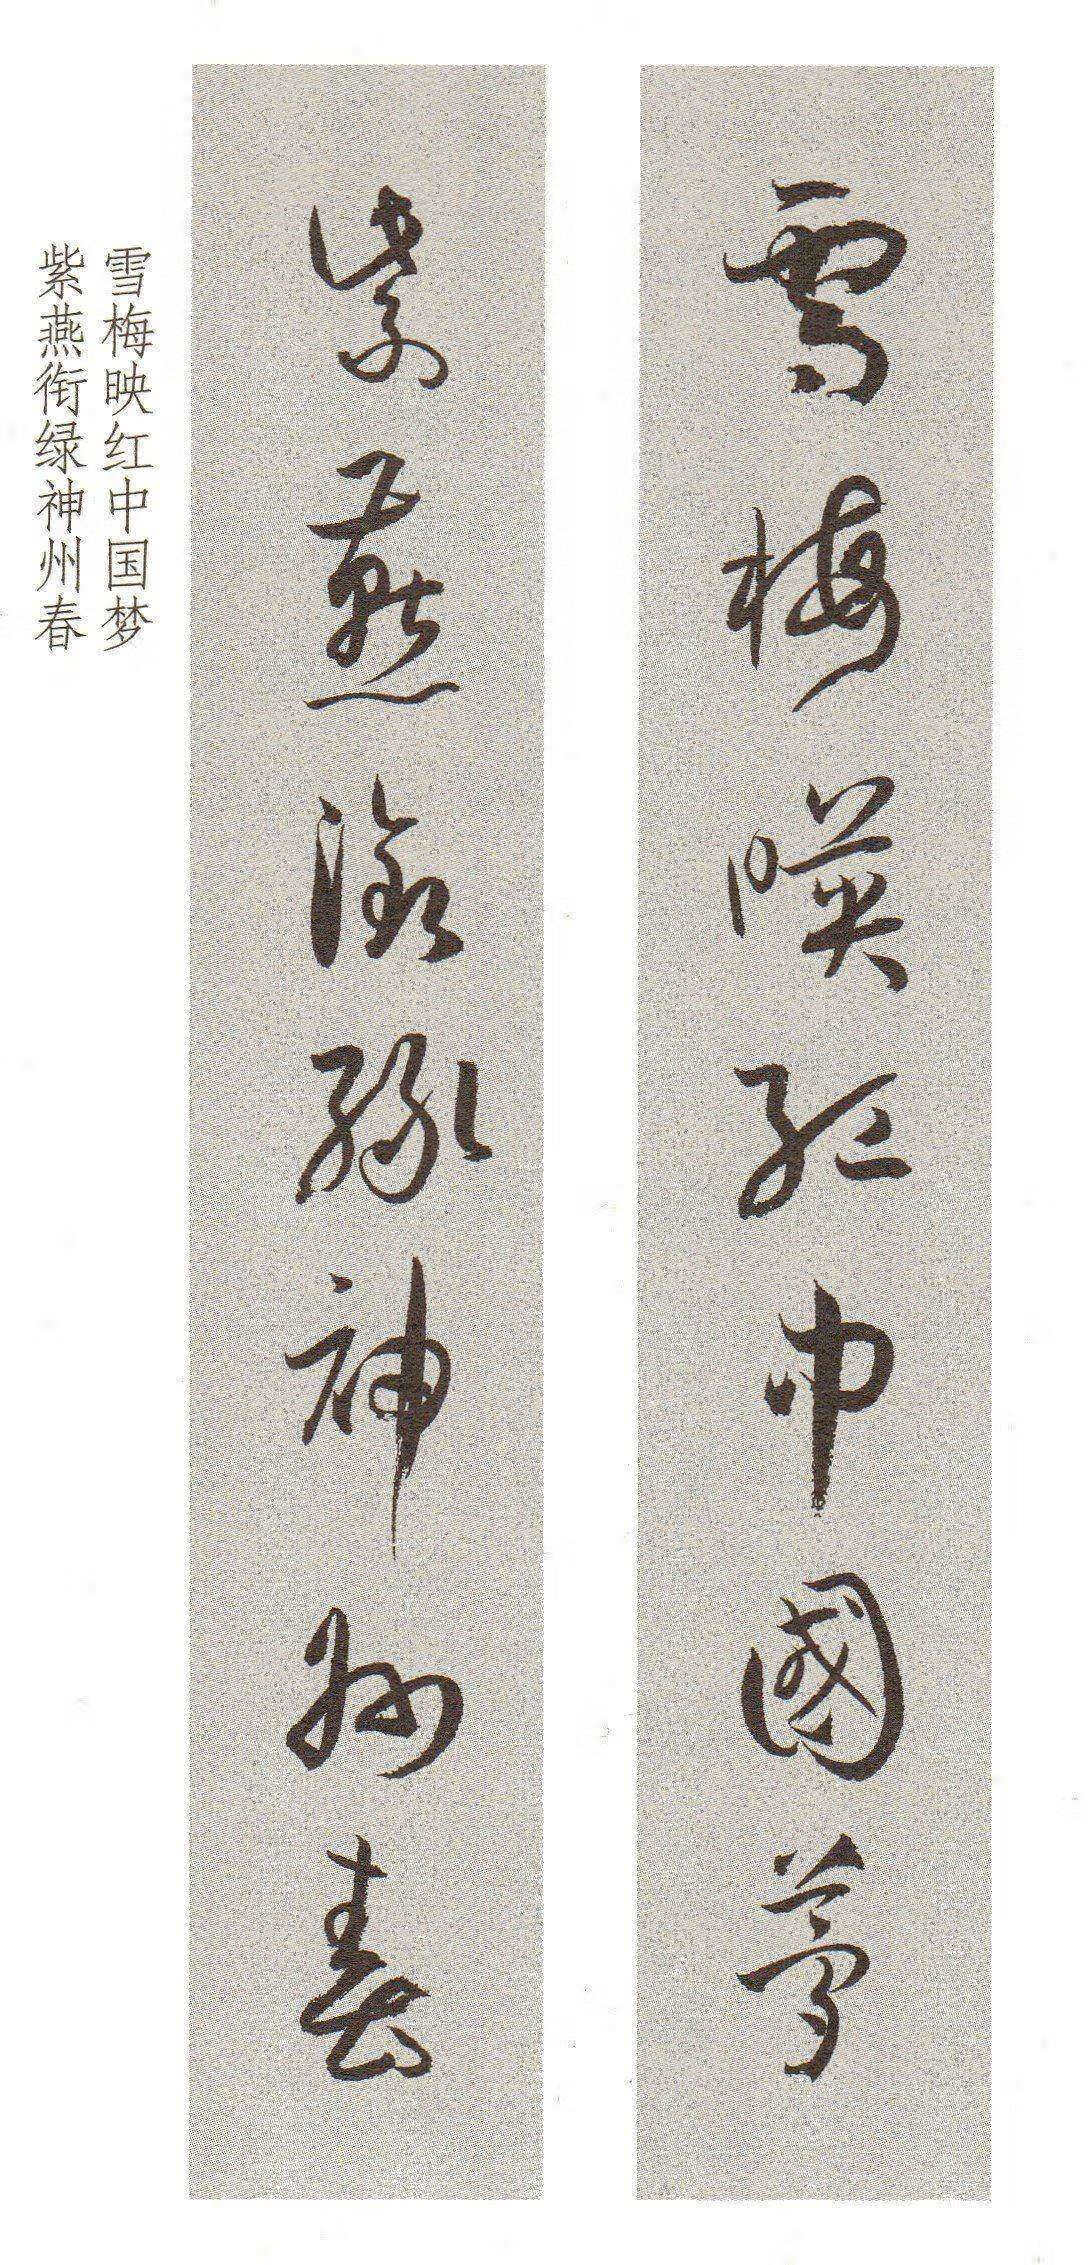 雪梅暎紅中國夢
紫燕銜緑神州春
雪梅映红中国梦
紫燕衔绿神州春